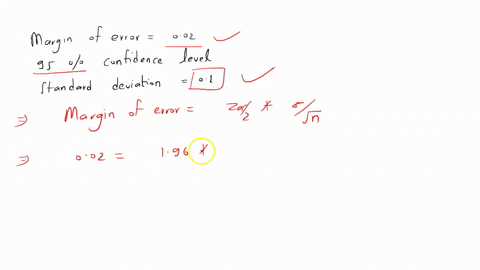 Margin of error = 0.02 ✓
95 % confidence level
Standard deviation = 0.1 ✓
⇒ Margin of error = Zα/2 * σ/√n
⇒ 0.02 = 1.96 *